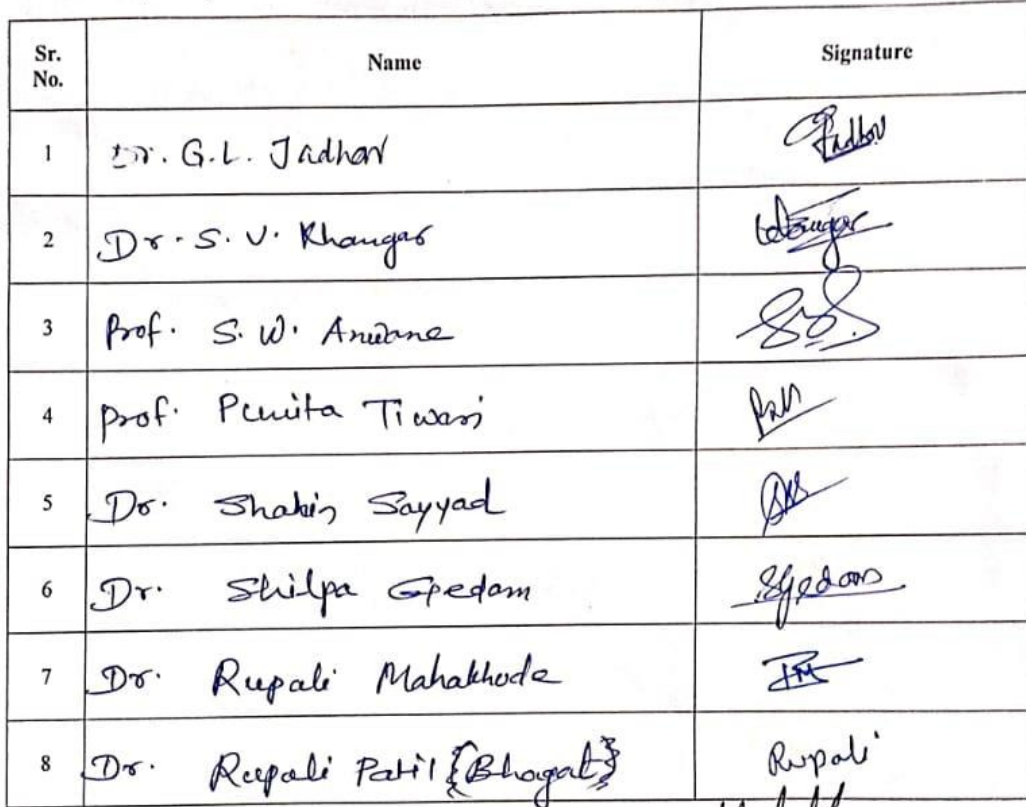 Sr. No. Name Signature
1 Dr. G.L. Jadhav Jadhav
2 Dr. S. V. Khangar
3 Prof. S. W. Anwane
4 Prof. Punita Tiwari
5 Dr. Shahin Sayyad
6 Dr. Shilpa Gedam SGedam
7 Dr. Rupali Mahakhode
8 Dr. Rupali Patil {Bhagat} Rupali